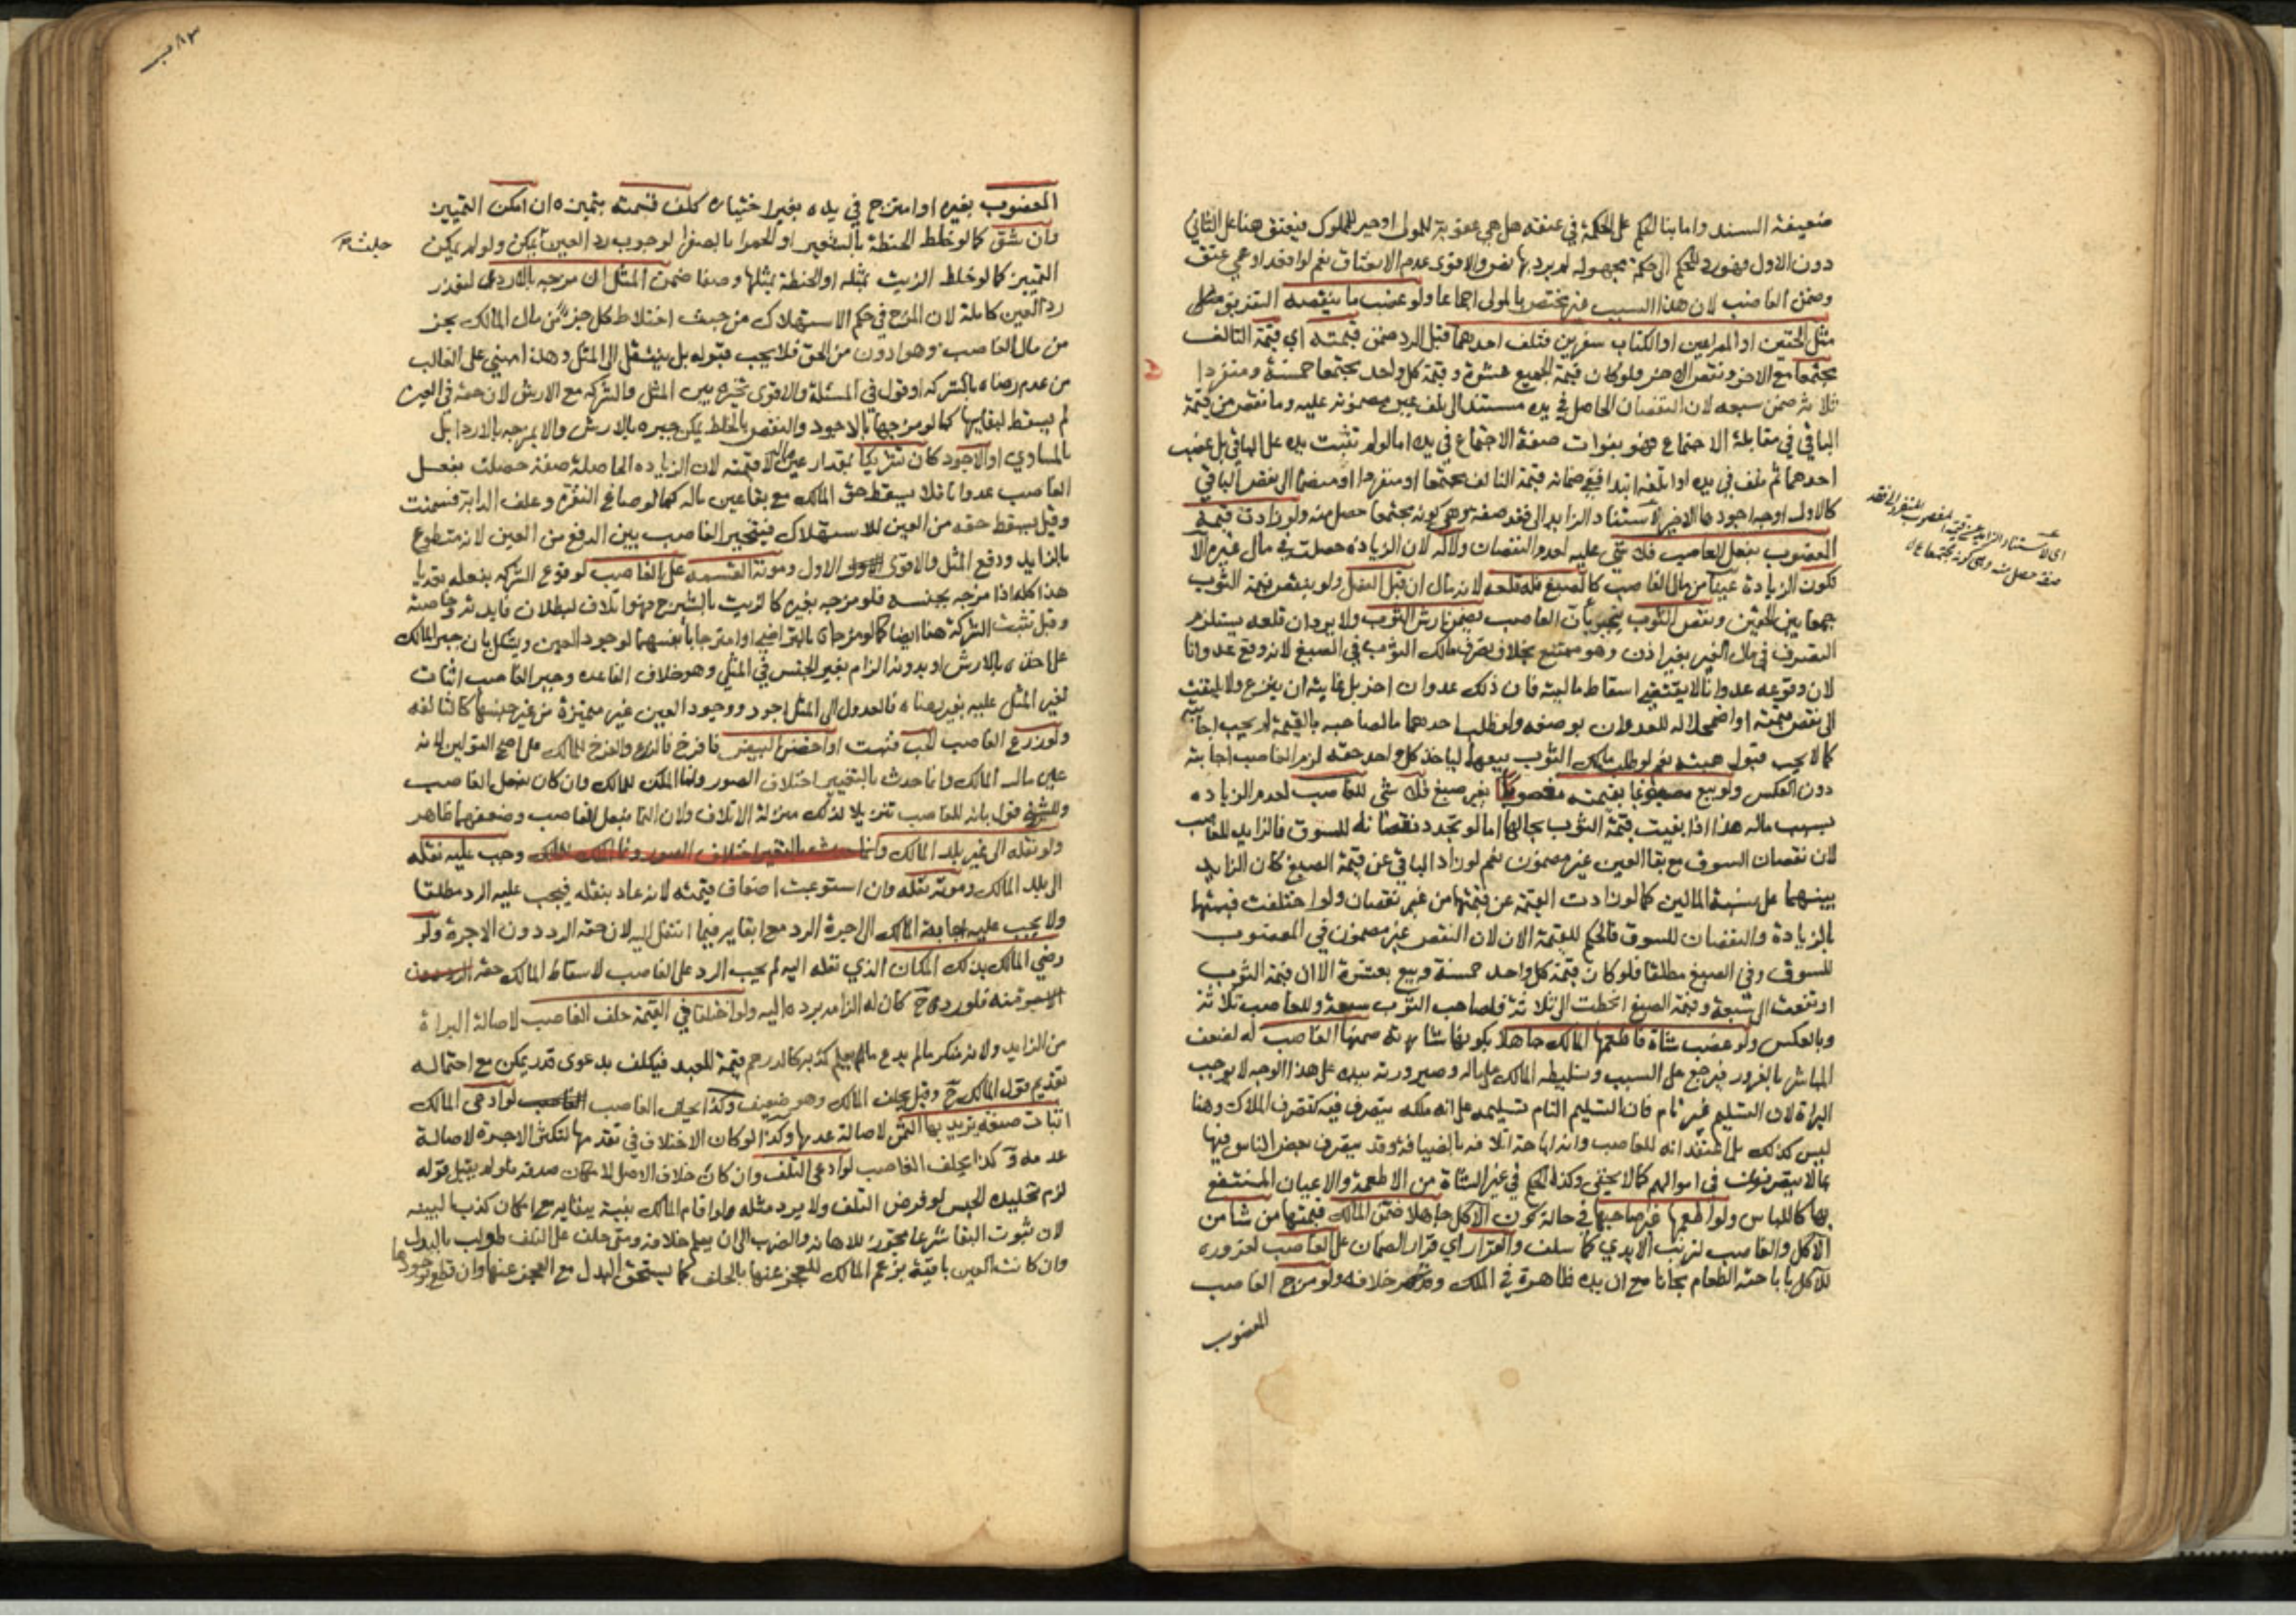 ضعيفة السند واما بنا الحكم على الحكمة في عتقه هل هي عقوبة للمولى او جبر للمملوك فينعتق هنا على الثاني
دون الاول فهو رد للحكم الى حكمة مجهولة لم يرد بها نص والاقوى عدم الانعتاق نعم لو اقعد او عمي عتق
وضمن الغاصب لان هذا السبب غير مختص بالمولى اجماعا ولو غصب ما ينقصه التفريق
مثل الخفين او المصراعين او الكتاب سفرين فتلف احدهما قبل الرد ضمن قيمته اي قيمة التالف
مجتمعا مع الاخر ونقص الاخر فلو كان قيمة الجميع عشرة وقيمة كل واحد مجتمعا خمسة ومنفردا
ثلاثة ضمن سبعة لان النقصان الحاصل في يده مستند الى تلف عين مضمونة عليه وما نقص من قيمة
الباقي في مقابلة الاجتماع فهو بفوات صفة الاجتماع في يده اما لو لم تثبت يده على الباقي بل غصب
احدهما ثم تلف في يده او اتلفه ابتدا ففي ضمانه قيمة التالف مجتمعا او منفردا او منضما الى نقص الباقي
كالاول اوجه اجودها الاخير لاستناد الزايد الى فقد صفة وهي كونه مجتمعا حصل منه ولو زادت قيمة
المغصوب بفعل الغاصب فلا شي عليه لعدم النقصان ولا له لان الزيادة حصلت في مال غيره الا
تكون الزيادة عينا من مال الغاصب كالصبغ فله قلعه لانه مال ان قبل الفصل ولو بنقص قيمة الثوب
جمعا بين الحقين ونقص الثوب ينجبر بان الغاصب يضمن ارش الثوب ولا يرد ان قلعه يستلزم
التصرف في مال الغير بغير اذن وهو ممتنع بخلاف تصرف مالك الثوب في الصبغ لانه وقع عدوانا
لان وقوعه عدوانا لا يقتضي اسقاط ماليته فان ذلك عدوان اخر بل غايته ان ينزع ولا يلتفت
الى نقص قيمته او اضمحلاله للعدوان بوضعه ولو طلب احدهما مالصاحبه بالقيمة لم يجب اجابته
كما لا يجب قبول هبته نعم لو طلب مالك الثوب بيعهما لياخذ كل واحد حقه لزم الغاصب اجابته
دون العكس ولو بيع مصبوغا بقيمته مغصوبا بغير صبغ فلا شي للغاصب لعدم الزيادة
بسبب ماله هذا اذا بقيت قيمة الثوب بحالها اما لو تجدد نقصانه للسوق فالزايد للغاصب
لان نقصان السوق مع بقا العين غير مضمون نعم لو زاد الباقي عن قيمة الصبغ كان الزايد
بينهما على نسبة المالين كما لو زادت القيمة عن قيمتهما من غير نقصان ولو اختلفت قيمتهما
بالزيادة والنقصان للسوق فالحكم للقيمة الان لان النقص غير مضمون في المغصوب
للسوق وفي الصبغ مطلقا فلو كان قيمة كل واحد خمسة وبيع بعشرة الا ان قيمة الثوب
ارتفعت الى سبعة وقيمة الصبغ انحطت الى ثلاثة فلصاحب الثوب سبعة وللغاصب ثلاثة
وبالعكس ولو غصب شاة فاطعمها المالك جاهلا بكونها شاته ضمنها الغاصب له لضعف
المباشر بالغرور فيرجع على السبب وتسليطه المالك على ماله وصيرورته بيده على هذا الوجه لا يوجب
البراة لان التسليم غير تام فان التسليم التام تسليمه على انه ملكه يتصرف فيه كتصرف الملاك وهنا
ليس كذلك بل اعتقد انه للغاصب وانه اباحه اتلافه بالضيافة وقد يتصرف بعض الناس فيها
بما لا يتصرفون في اموالهم كما لا يخفى وكذا الحكم في غير الشاة من الاطعمة والاعيان المنتفع
بها كاللباس ولو اطعمها غير صاحبها في حالة كون الاكل جاهلا ضمن المالك قيمتها من شا من
الاكل والغاصب لترتب الايدي كما سلف والقرار اي قرار الضمان على الغاصب لغروره
للاكل باباحته الطعام مجانا مع ان يده ظاهرة في الملك وظهر خلافه ولو مزج الغاصب
المغصوب
اى لاستناد الزايد عن قيمة المغصوب المنفرد الى فقد
صفة حصل منه وهى كونه مجتمعا
المغصوب بغيره او امتزج في يده بغير اختياره كلف قسمته بتميزه ان امكن التمييز
وان شق كما لو خلط الحنطة بالشعير او الحمرا بالصفرا لوجوب رد العين ما يمكن ولو لم يمكن
التمييز كما لو خلط الزيت بمثله او الحنطة بمثلها وصفا ضمن المثل ان مزجه بالاردى لتعذر
رد العين كاملة لان المزج في حكم الاستهلاك من حيث اختلاط كل جز من مال المالك بجز
من مال الغاصب وهو ادون من الحق فلا يجب قبوله بل ينتقل الى المثل وهذا مبني على الغالب
من عدم رضاه بالشركة او قول في المسئلة والاقوى تخيره بين المثل والشركة مع الارش لان حقه في العين
لم يسقط لبقايها كما لو مزجها بالاجود والنقص بالخلط يمكن جبره بالارش والا يمزجه بالاردا بل
بالمساوي او الاجود كان شريكا بقدار عين ماله لا قيمته لان الزيادة الحاصلة صفة حصلت بفعل
الغاصب عدوانا فلا يسقط حق المالك مع بقا عين ماله كما لو صاغ النقرة وعلف الدابة فسمنت
وقيل يسقط حقه من العين للاستهلاك فيتخير الغاصب بين الدفع من العين لانه متطوع
بالزايد ودفع المثل والاقوى الاول ومونة القسمة على الغاصب لوقوع الشركة بفعله تعديا
هذا كله اذا مزجه بجنسه فلو مزجه بغيره كالزيت بالشيرج فهو اتلاف لبطلان فايدته وخاصيته
وقيل تثبت الشركة هنا ايضا كما لو مزجاه بالتراضي او امتزجا بانفسهما لوجود العين ويشكل بان جبر المالك
على اخذه بالارش او بدونه الزام بغير الجنس في المثلي وهو خلاف القاعدة وجبر الغاصب اثبات
لغير المثل عليه بغير رضاه فالعدول الى المثل اجود ووجود العين غير متميزة من غير جنسها كالتالفة
ولو زرع الغاصب الحب فنبت او احضن البيض فافرخ فالزرع والفرخ للمالك على اصح القولين لانه
عين مال المالك وانما حدث بالتغيير اختلاف الصور ونما الملك للمالك وان كان بفعل الغاصب
وللشيخ قول بانه للغاصب تنزيلا لذلك منزلة الاتلاف ولان النما بفعل الغاصب وضعفهما ظاهر
ولو نقله الى غير بلد المالك وانما حدث بالتغير اختلاف الصور ونما الملك للمالك وجب عليه نقله
الى بلد المالك ومونة نقله وان استوعبت اضعاف قيمته لانه عاد بنقله فيجب عليه الرد مطلقا
ولا يجب عليه اجابة المالك الى اجرة الرد مع ابقايه فيما انتقل اليه لان حقه الرد دون الاجرة ولو
رضي المالك بذلك المكان الذي نقله اليه لم يجب الرد على الغاصب لاسقاط المالك حقه
منه فلو رده ح كان له الزامه برده اليه ولو اختلفا في القيمة حلف الغاصب لاصالة البراة
من الزايد ولانه منكر ما لم يدع ما يعلم كذبه كالدرهم قيمة للعبد فيكلف بدعوى قدر يمكن مع احتمال
تقديم قول المالك ح وقيل يحلف المالك وهو ضعيف وكذا يحلف الغاصب لو ادعى المالك
اثبات صفة يزيد بها الثمن لاصالة عدمها وكذا لو كان الاختلاف في تقدمها لتكثر الاجرة لاصالة
عدمه وكذا يحلف الغاصب لو ادعى التلف وان كان خلاف الاصل لامكان صدقه فلو لم يقبل قوله
لزم تخليده الحبس لو فرض التلف ولا يرد مثله ما لو اقام المالك بينة ببقايه مع امكان كذب البينة
لان ثبوت البقا شرعا مجوز للاهانة والضرب الى ان يعلم خلافه ومتى حلف على التلف طولب بالبدل
وان كانت العين باقية بزعم المالك للعجز عنها بالحلف كما يستحق البدل مع العجز عنها وان قطع بوجودها